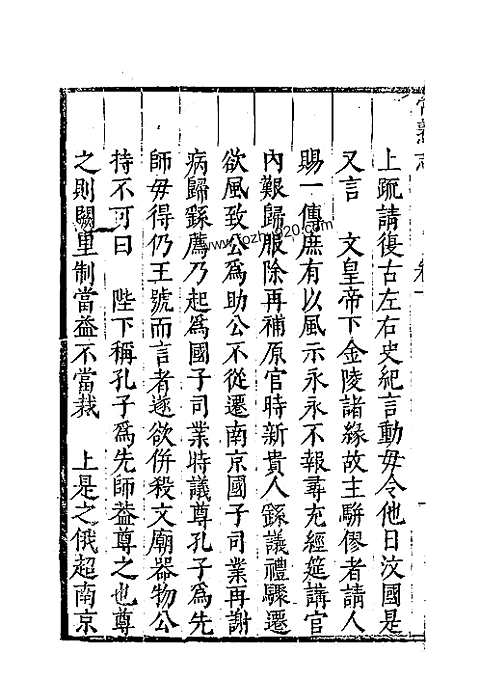 常熟志
卷
上疏請復古左右史紀言動毋令他日汶國是
又言　文皇帝下金陵諸緣故主駢僇者請人
賜一傳庶有以風示永永不報尋充經筵講官
內艱歸服除再補原官時新貴人繇議禮驟遷
欲風致公爲助公不從遷南京國子司業再謝
病歸繇薦乃起爲國子司業時議尊孔子爲先
師毋得仍王號而言者遂欲併殺文廟器物公
持不可曰　陛下稱孔子爲先師葢尊之也尊
之則闕里制當益不當裁　上是之俄超南京